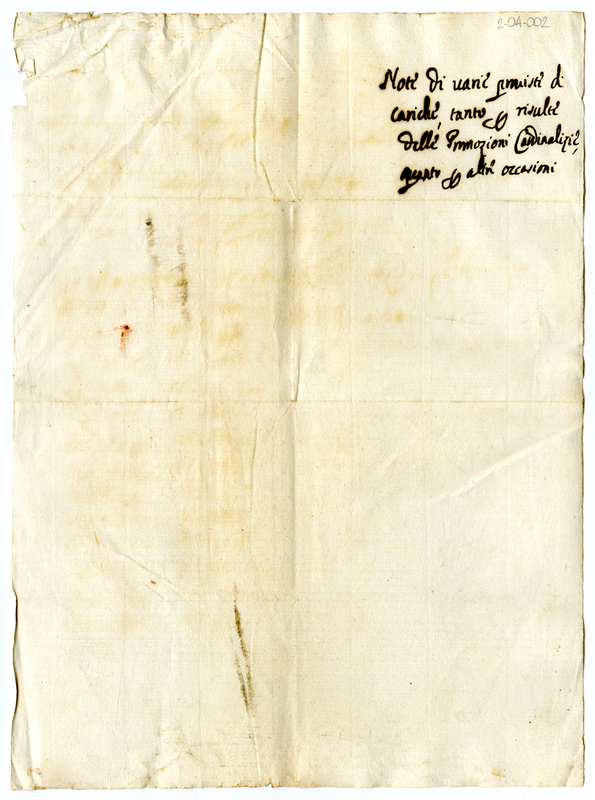 2-04-002
Note di varie proviste di
cariche, tanto p risulte
delle Promozioni Cardinalizie,
quanto p altre occasioni